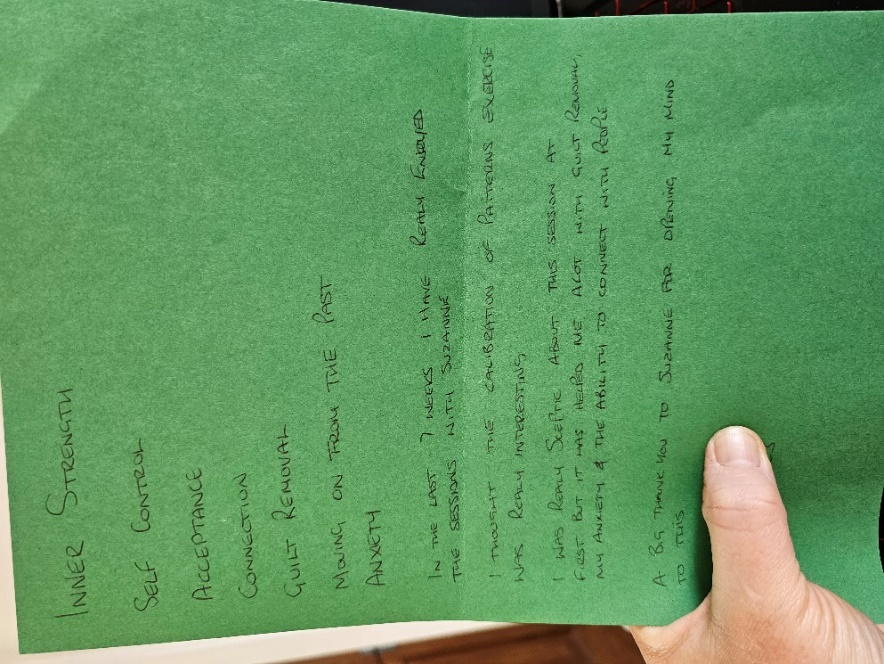 INNER STRENGTH
SELF CONTROL
ACCEPTANCE
CONNECTION
GUILT REMOVAL
MOVING ON FROM THE PAST
ANXIETY
IN THE LAST 7 WEEKS I HAVE REALY ENJOYED
THE SESSIONS WITH SUZANNE
I THOUGHT THE CALIBRATION OF PATTERNS EXERCISE
WAS REALY INTERESTING
I WAS REALY SCEPTIC ABOUT THIS SESSION AT
FIRST BUT IT HAS HELPED ME ALOT WITH GUILT REMOVAL,
MY ANXIETY & THE ABILITY TO CONNECT WITH PEOPLE
A BIG THANK YOU TO SUZANNE FOR OPENING MY MIND
TO THIS